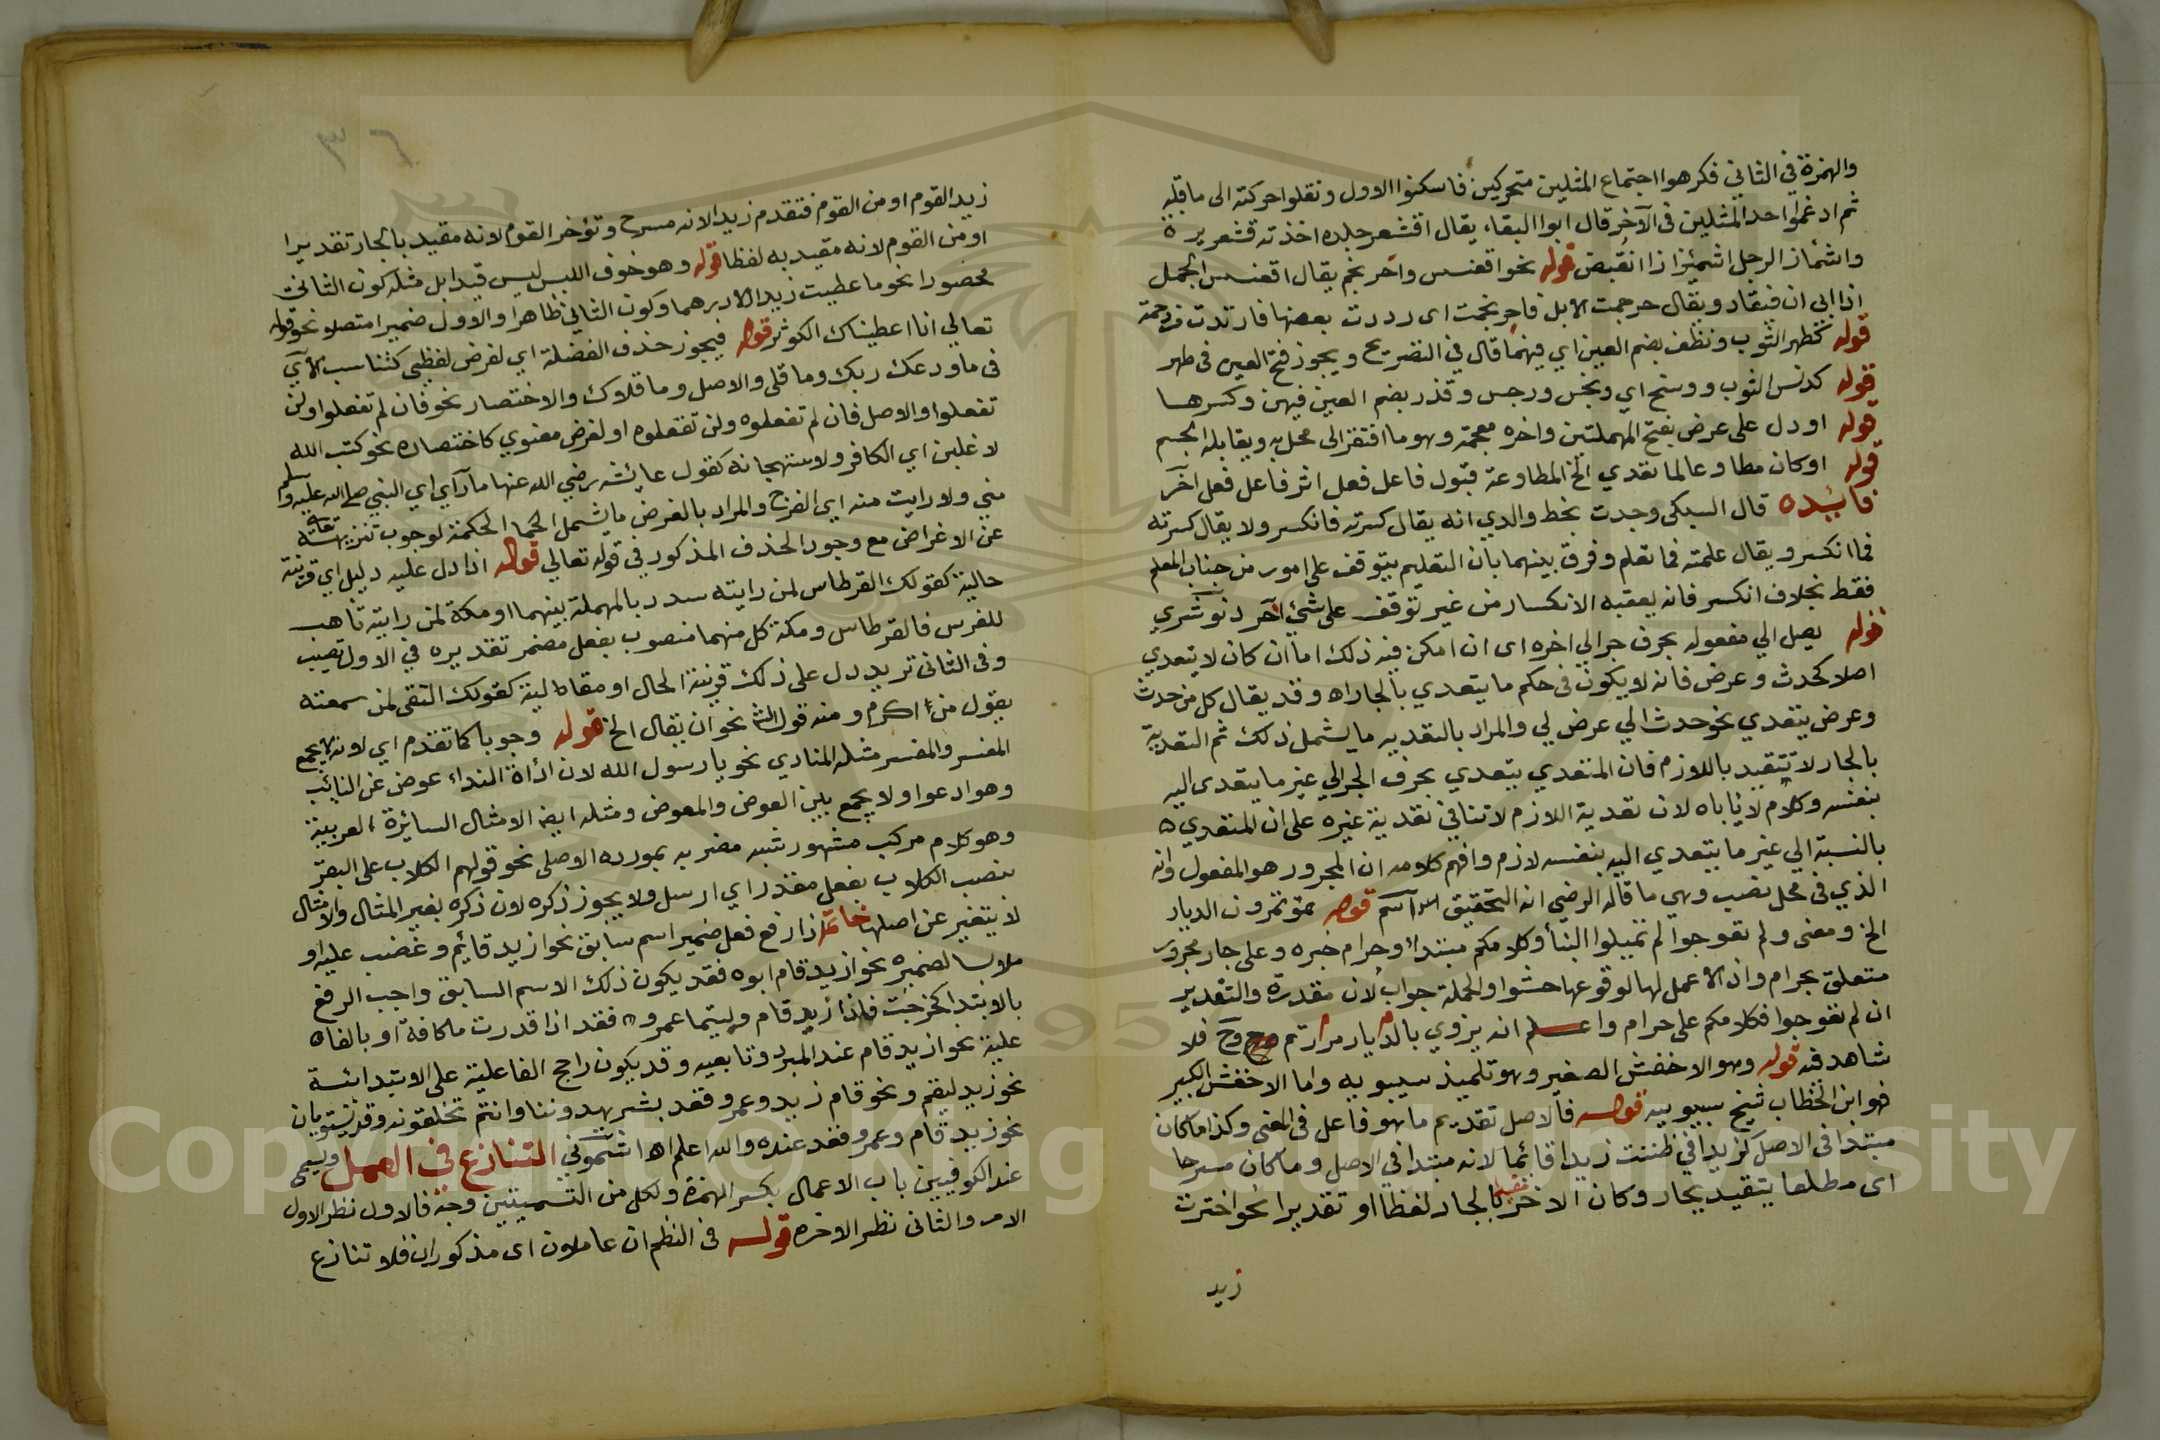 والهمزة في الثاني فكرهوا اجتماع المثلين متحركين فاسكنوا الاول ونقلوا حركته الى ما قبله
ثم ادغموا احد المثلين في الآخر قال ابوا البقاء يقال اقشعر جلده اخذته قشعريرة
واشمأز الرجل اشمئزازا انقبض قوله نحو اقعنسس واحرنجم يقال اقعنسس الجمل
اذا ابى ان ينقاد ويقال حرجمت الابل فاحرنجمت اى رددت بعضها فارتدت مزدحمة
قوله كطهر الثوب ونظف بضم العين اي فيهما قال في التصريح ويجوز فتح العين في طهر
قوله كدنس الثوب ووسخ اي ونجس ورجس وقذر بضم العين فيهن وكسرها
قوله اودل على عرض بفتح المهملتين واخره معجمة وهو ما افتقر الى محل به ويقابله الجسم
قوله اوكان مطاوعا لما تعدي الخ المطاوعة قبول فاعل فعل اثر فاعل فعل آخر
فائده قال السبكى وجدت بخط والدي انه يقال كسرته فانكسر ولا يقال كسرته
فما انكسر ويقال علمته فما تعلم وفرق بينهما بان التعليم يتوقف على امور من جناب المعلم
فقط بخلاف انكسر فانه يعقبه الانكسار من غير توقف على شئ آخر دنوشري
قوله يصل الي مفعوله بحرف جر الى اخره اى ان امكن فيه ذلك اما ان كان لا يتعدي
اصلا كحدث وعرض فانه لا يكون في حكم ما يتعدي بالجار اه وقد يقال كل من حدث
وعرض يتعدي نحو حدث الي عرض لي والمراد بالتعديه ما يشمل ذلك ثم التعدية
بالجار لا تتقيد باللازم فان المتعدي يتعدي بحرف الجر الي غير ما يتعدى اليه
بنفسه وكلام لا ياباه لان تعدية اللازم لا تنافي تعدية غيره على ان المتعدي
بالنسبة الي غير ما يتعدي اليه بنفسه لازم وافهم كلامه ان المجرور هو المفعول وانه
الذي في محل نصب وهي ما قاله الرضى انه التحقيق قوله تمرون الديار
الخ ومعنى ولم تعوجوا لم تميلوا البنا وكلامكم مبتدأ وحرام خبره وعلى جار مجرور
متعلق بحرام واذا لا عمل لها لوقوعها حشوا والجملة جواب لان مقدرة والتقدير
ان لم تعوجوا فكلامكم على حرام واعلم انه يروي بالديار مررتم وح فلا
شاهد فيه قوله وهو الاخفش الصغير وهو تلميذ سيبويه واما الاخفش الكبير
فهو ابن الخطاب شيخ سيبويه قوله فالاصل تقديم ما هو فاعل في المعنى وكذا ما كان
مبتدا في الاصل كزيدا في ظننت زيدا قائما لانه مبتدا في الاصل وما كان مسرحا
اى مطلعا يتقيد بجار وكان الاخر مقيدا بالجار لفظا او تقديرا نحو اخترت
زيد
زيد القوم او من القوم فتقدم زيدا لانه مسرح وتؤخر القوم لانه مقيد بالجار تقديرا
او من القوم لانه مقيد به لفظا قوله وهو خوف اللبس ليس قيدا بل مثله كون الثاني
محصورا نحو ما عطيت زيدا الا درهما وكون الثاني ظاهرا والاول ضميرا متصلا نحو قوله
تعالي انا اعطيناك الكوثر قوله فيجوز حذف الفضلة اي لغرض لفظي كتناسب الآي
في ما ودعك ربك وما قلى والاصل وما قلاك والاختصار نحو فان لم تفعلوا ولن
تفعلوا والاصل فان لم تفعلوه ولن تفعلوه او لغرض معنوي كاختصاره نحو كتب الله
لاغلبن اي الكافر ولاستهجانه كقول عايشه رضي الله عنها ما رآى اي النبي صلى الله عليه وسلم
مني ولا رايت منه اي الفرج والمراد بالغرض ما يشمل الحكمة لوجوب تنزيهه تعالى
عن الاغراض مع وجود الحذف المذكور في قوله تعالي قوله اذا دل عليه دليل اي قرينة
حالية كقولك القرطاس لمن رايته سدد بالمهملة بينهما او مكة لمن رايته تاهب
للفرس فالقرطاس ومكة كل منهما منصوب بفعل مضمر تقديره في الاول تصيب
وفي الثاني تريد دل على ذلك قرينة الحال او مقالية كقولك التقى لمن سمعته
يقول من اكرم ومنه قول الش نحو ان يقال الخ قوله وجوبا كما تقدم اي لانه لا يجمع
المفسر والمفسر مثله المنادي نحو يا رسول الله لان اداة النداء عوض عن النايب
وهو ادعوا ولا يجمع بين العوض والمعوض ومثله ايضا الامثال السايرة العربية
وهو كلام مركب مشهور شبه مضربه بمورده الاصلى نحو قولهم الكلاب على البقر
بنصب الكلاب بفعل مقدر اي ارسل ولا يجوز ذكره لان ذكره يغير المثال والامثال
لا يتغير عن اصلها خاتمة اذا رفع فعل ضمير اسم سابق نحو ازيد قايم وغضب عليه او
ملابسا لضميره نحو ازيد قام ابوه فقد يكون ذلك الاسم السابق واجب الرفع
بالابتدا كخرجت فاذا زيد قام وليتما عمرو فقد اذا قدرت ما كافة او بالفا
علية نحو ازيد قام عند المبرد وتابعيه وقد يكون راجح الفاعلية على الابتدائية
نحو زيد ليقم ونحو قام زيد وعمرو قعد بشر يهدوننا وانتم تخلقونه وقد يستويان
نحو زيد قام وعمرو قعد عنده والله اعلم اه اشموني التنازع في العمل ويسمى
عند الكوفيين باب الاعمال بكسر الهمزة ولكل من التسميتين وجه فالاول نظر الاول
الامر والثاني نظر الاخره قوله في النظم ان عاملان اى مذكوران فلا تنازع
Copyright © King Saud University